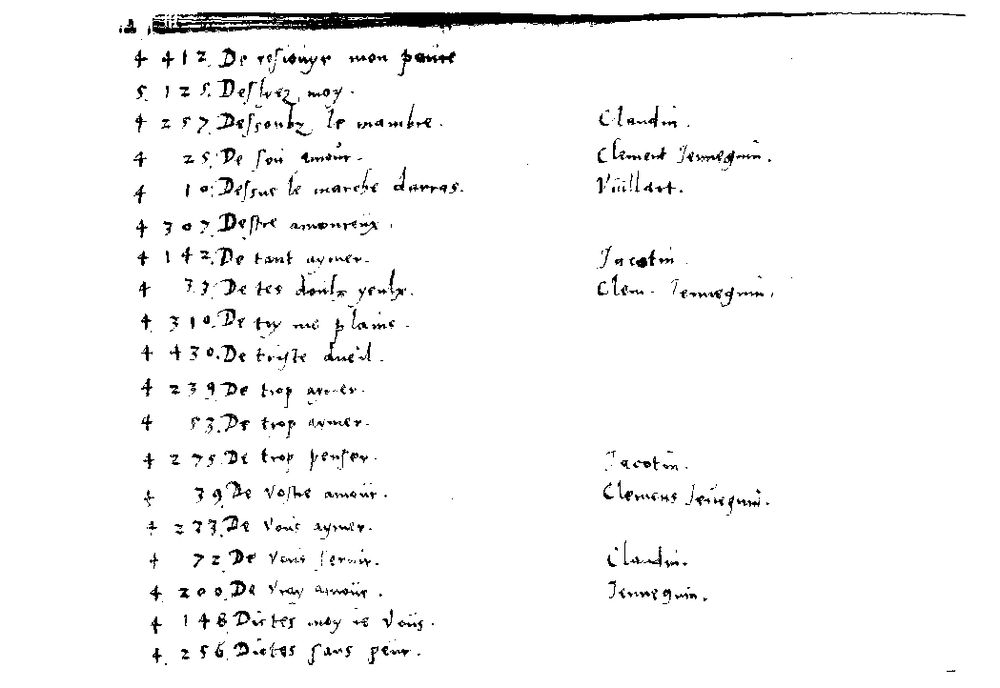 4 412. De resiouyr mon pauvre
5. 125. Desliez moy.
4 257. Dessoubz le marmbre. Claudin.
4 25. De son amour. Clement Jennequin.
4 10. Dessus le marche darras. Vuillart.
4 307. Destre amoureux.
4 142. De tant aymer. Jacotin.
4 33. De tes doulx yeulx. Clem. Jennequin.
4 310. De toy me plains.
4 430. De triste dueil.
4 239 De trop aymer.
4 53. De trop aymer.
4 275. De trop penser. Jacotin.
4 39. De vostre amour. Clemens Jenequin.
4 233. De vous aymer.
4 72. De vous servir. Claudin.
4 200. De vray amour. Jennequin.
4 148. Dictes moy ie vous.
4. 256. Dictes sans peur.